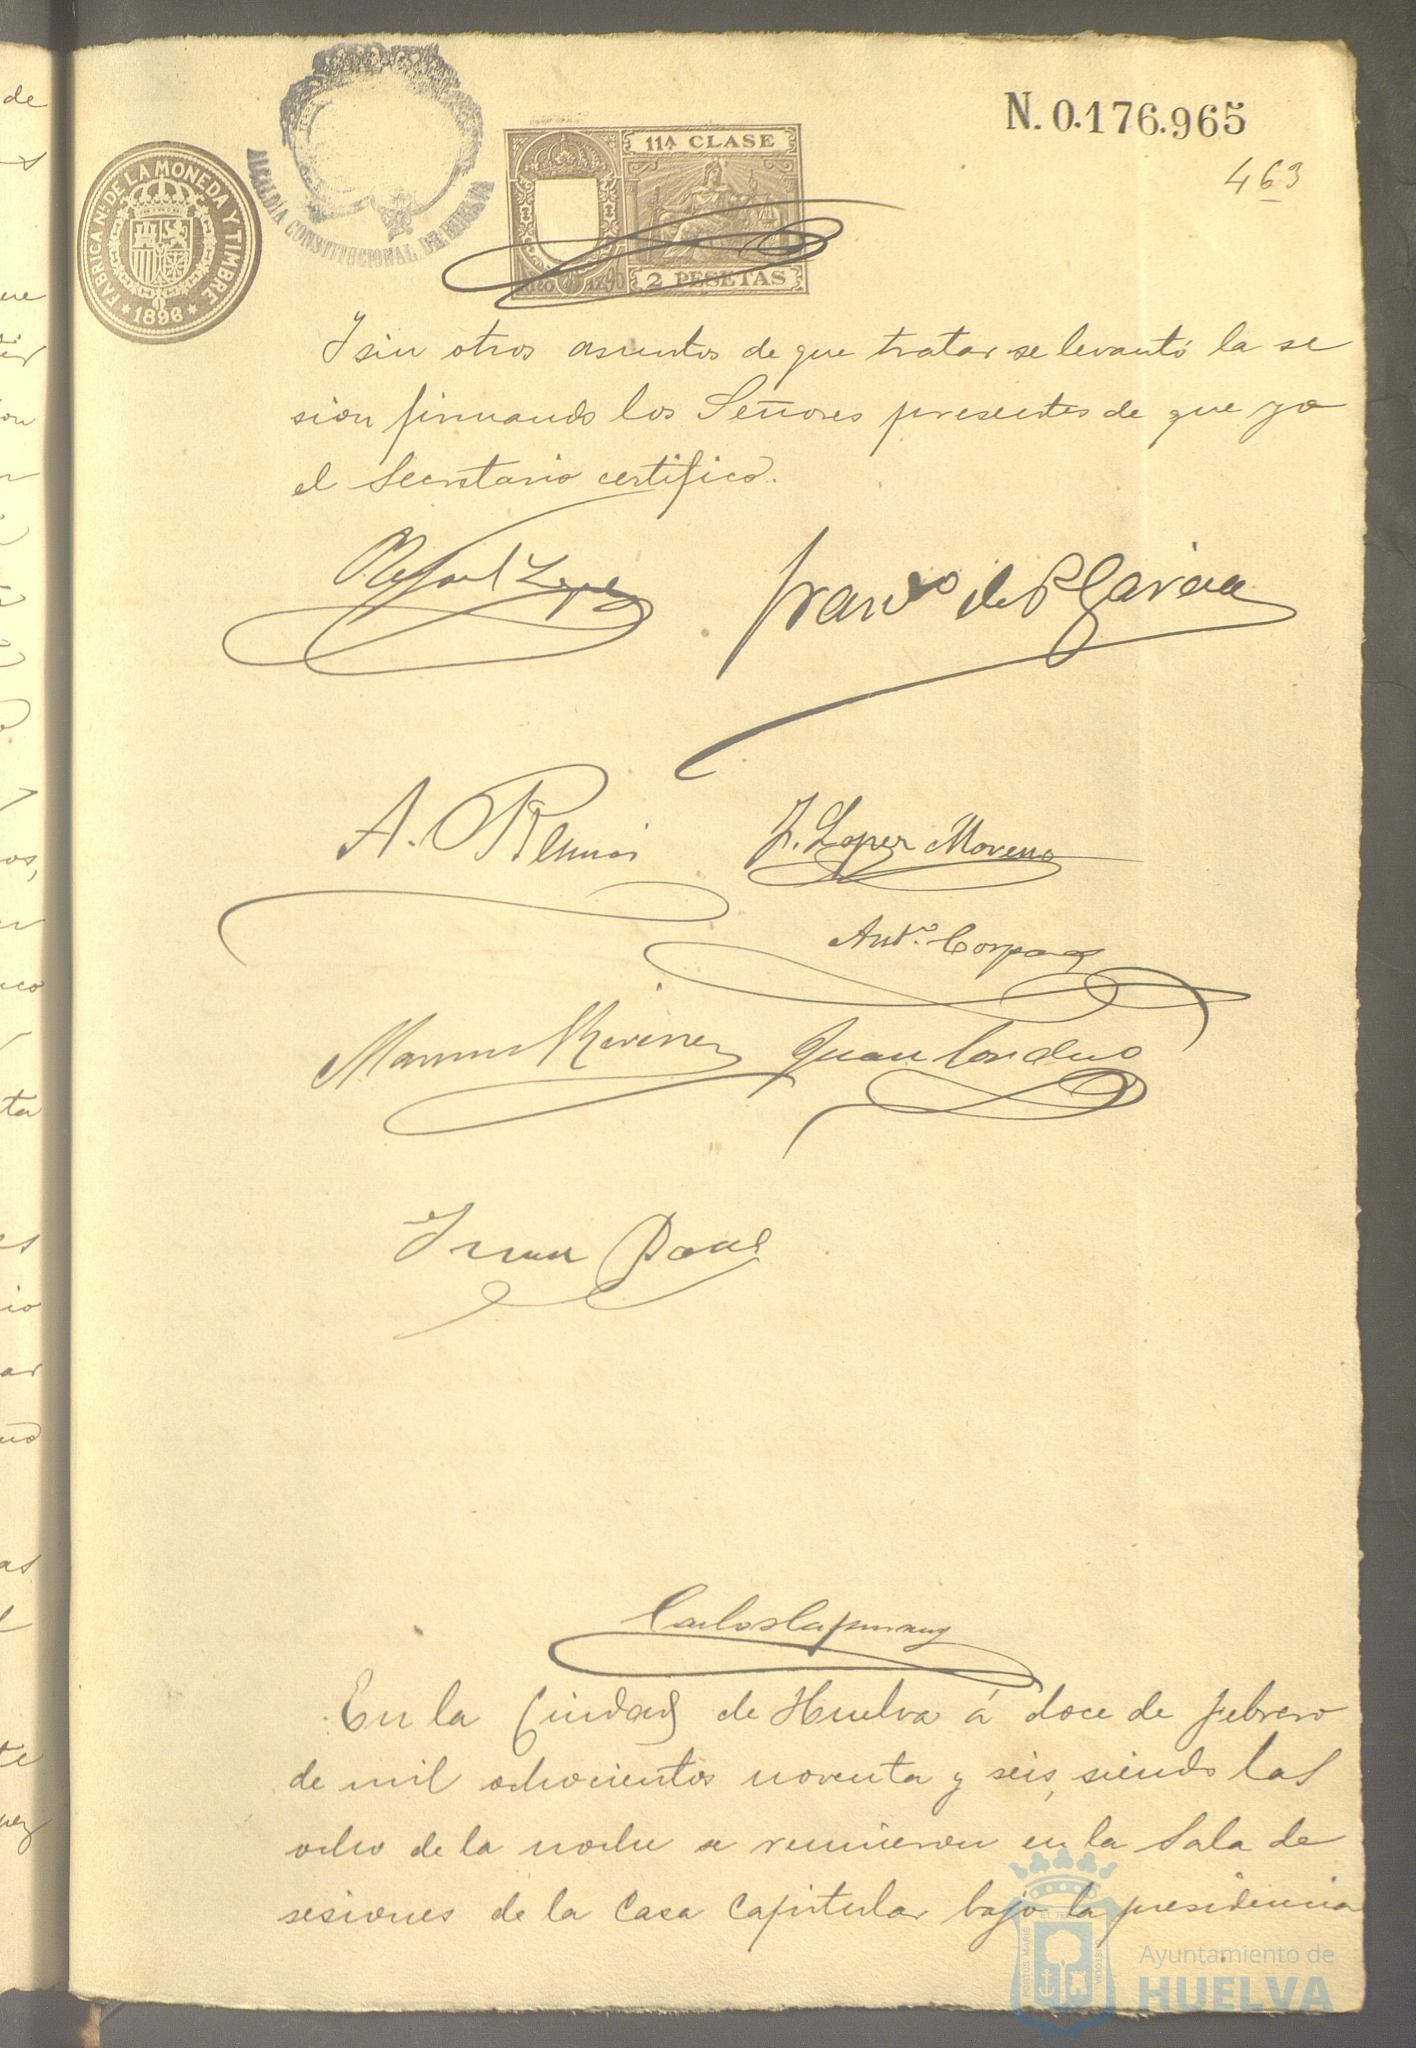 N. 0.176.965
463
11ª CLASE
2 PESETAS
FABRICA Nᴸ DE LA MONEDA Y TIMBRE
1896
ALCALDÍA CONSTITUCIONAL DE HUELVA
Y sin otros asuntos de que tratar se levantó la se
sion firmando los Señores presentes de que yo
el Secretario certifico.
Rafael Lopez
Franco de P Garcia
A.
J. Lopez Moreno
Antº. Corpas
Juan Cordero
Carlos
En la Ciudad de Huelva á doce de febrero
de mil ochocientos noventa y seis, siendo las
ocho de la noche se reunieron en la Sala de
sesiones de la Casa Capitular bajo la presidencia
Ayuntamiento de
HUELVA